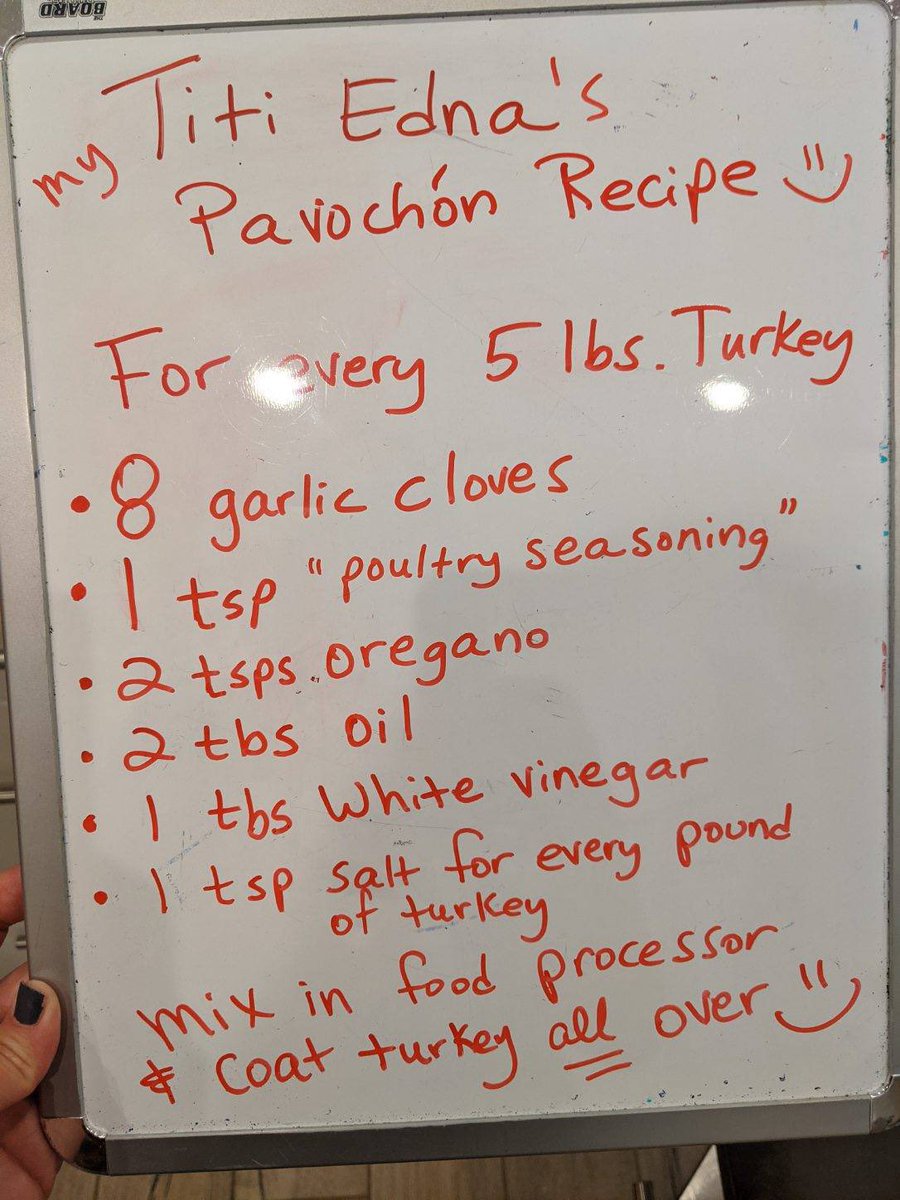 THE BOARD
my Titi Edna's
Pavochón Recipe
For every 5 lbs. Turkey
• 8 garlic cloves
• 1 tsp "poultry seasoning"
• 2 tsps. oregano
• 2 tbs oil
• 1 tbs White vinegar
• 1 tsp salt for every pound
of turkey
mix in food processor
& coat turkey all over